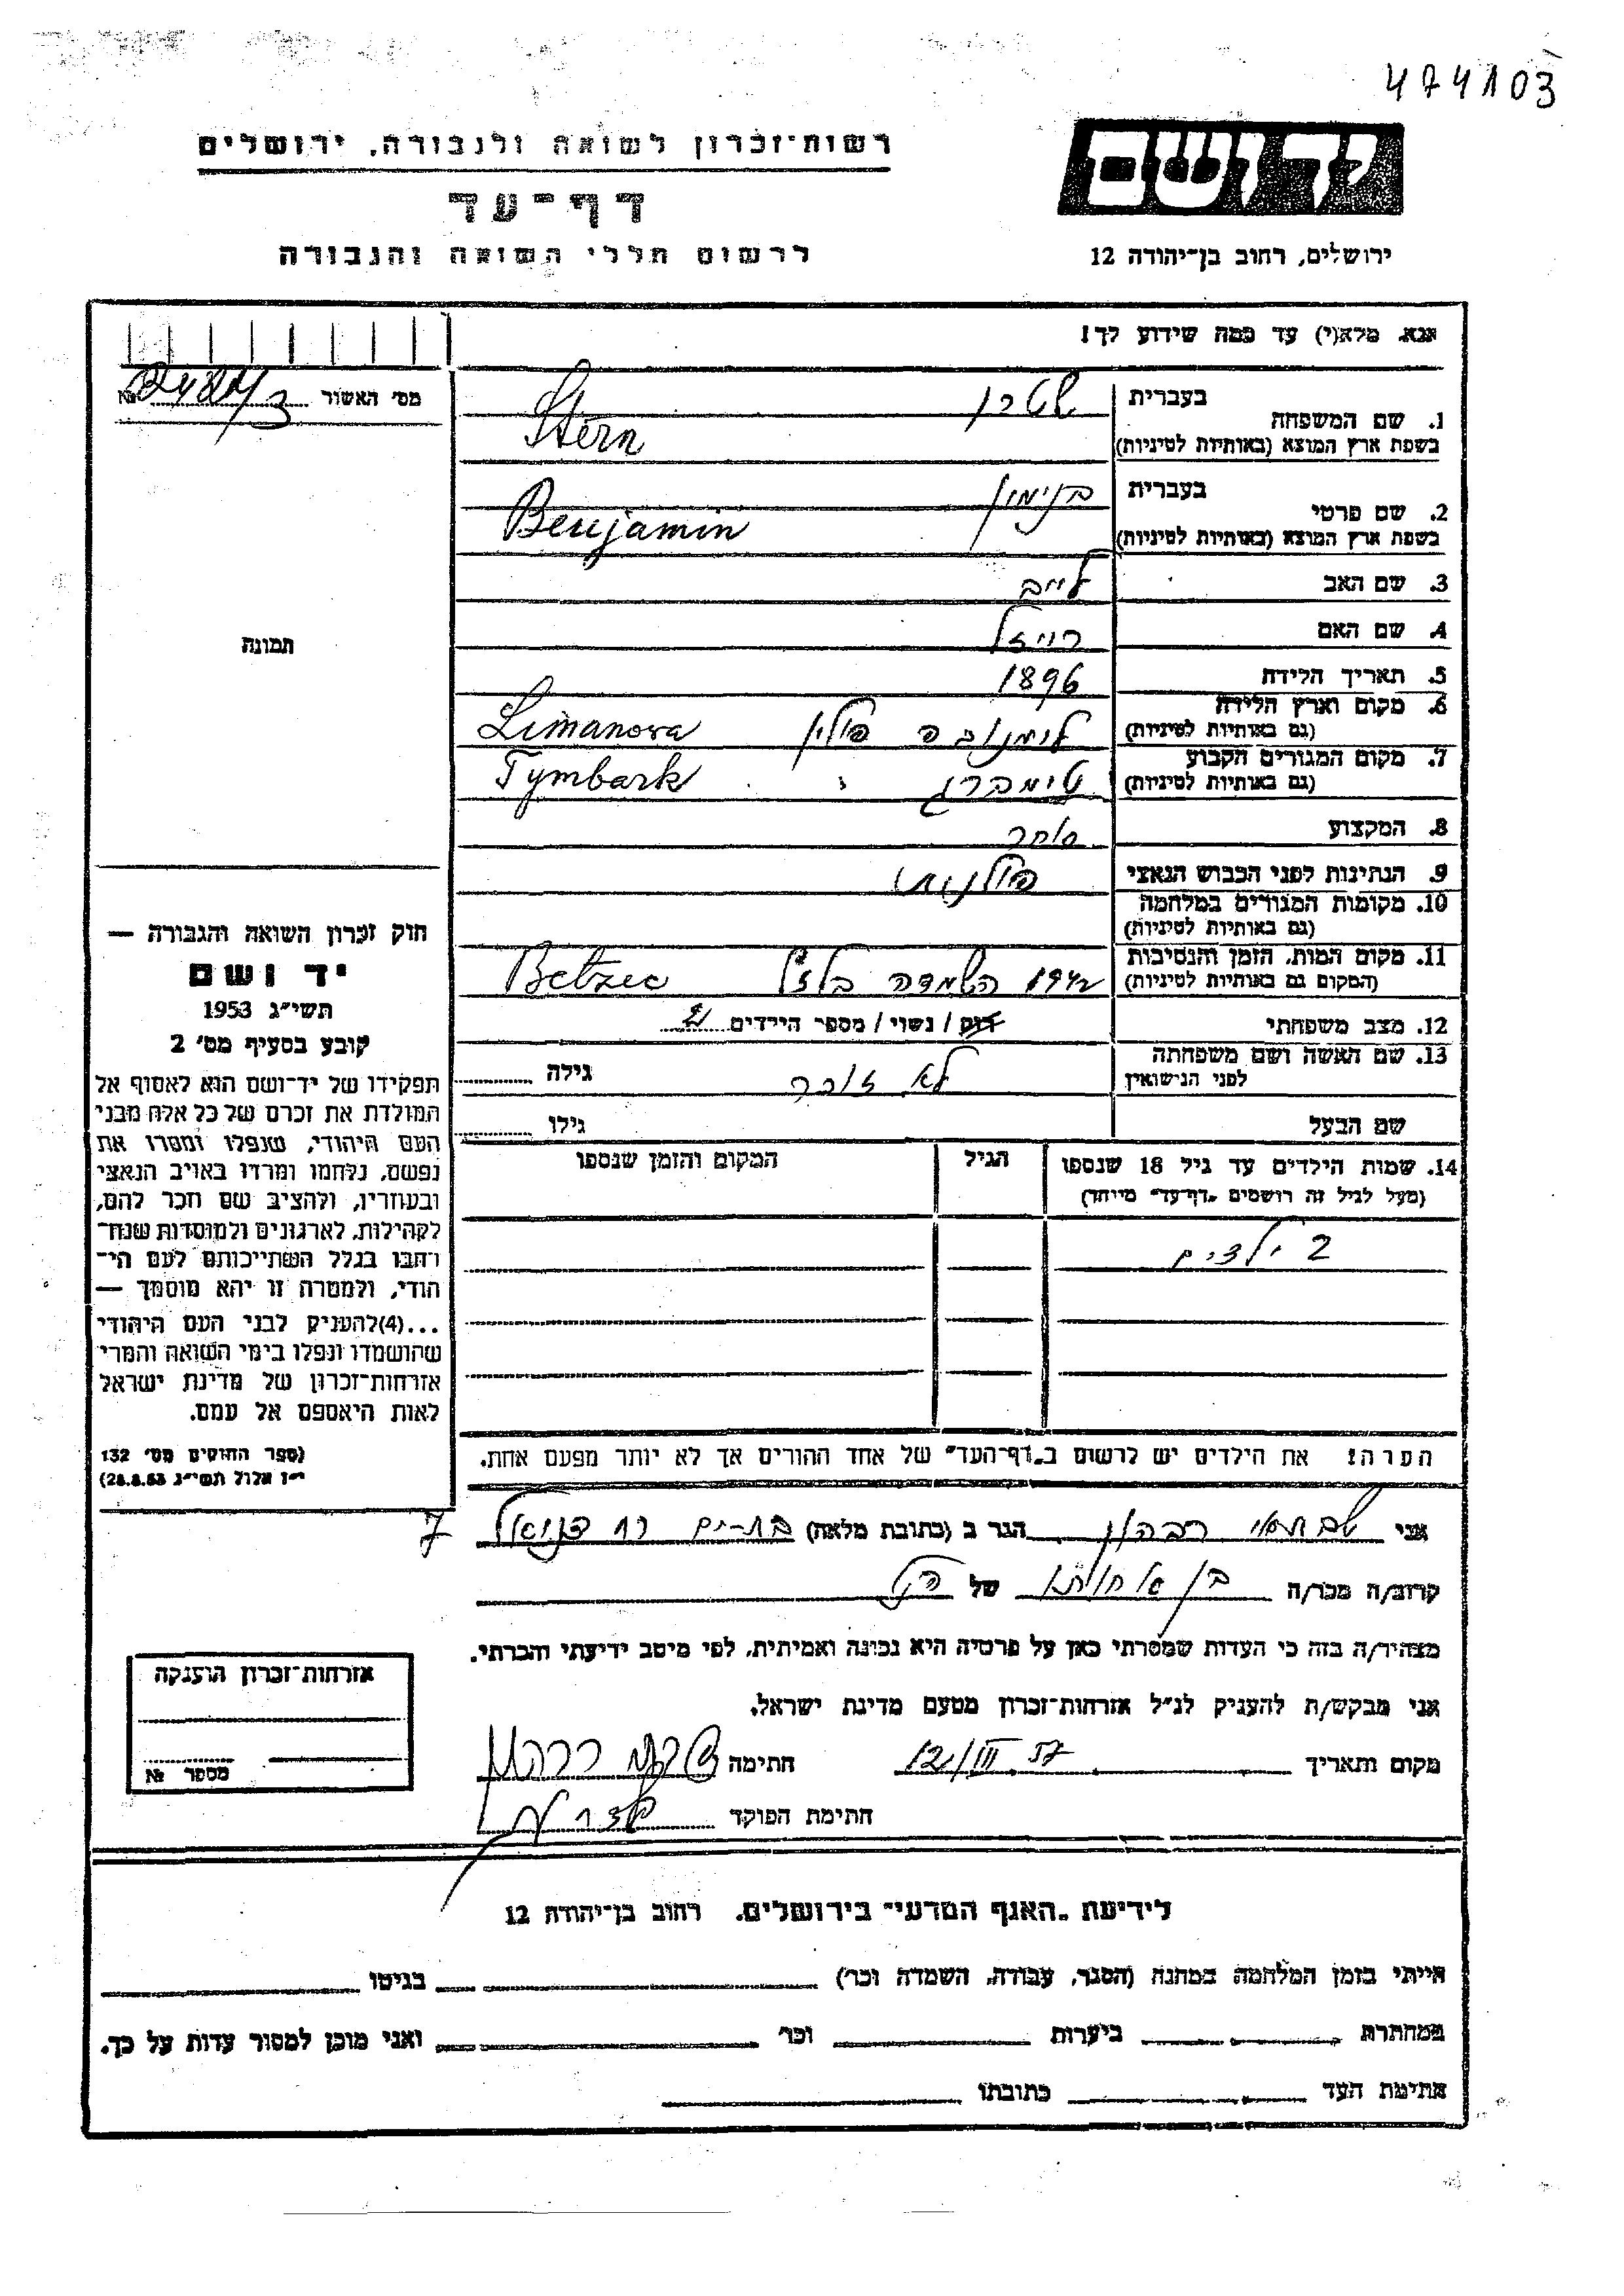 474103
יד ושם
רשות־זכרון לשואה ולגבורה, ירושלים
דף־עד
ירושלים, רחוב בן־יהודה 12
לרשום חללי השואה והגבורה
אנא, מלא(י) עד כמה שידוע לך!
מס׳ האשור №
1. שם המשפחה
בעברית שטרן
בשפת ארץ המוצא (באותיות לטיניות) Stern
2. שם פרטי
בעברית בנימין
בשפת ארץ המוצא (באותיות לטיניות) Benjamin
3. שם האב לייב
4. שם האם רויזל
5. תאריך הלידה 1896
6. מקום וארץ הלידה
(גם באותיות לטיניות) לימנובה פולין Limanova
7. מקום המגורים הקבוע
(גם באותיות לטיניות) טימברג " Tymbark
8. המקצוע סוחר
9. הנתינות לפני הכבוש הנאצי פולנית
10. מקומות המגורים במלחמה
(גם באותיות לטיניות)
11. מקום המות, הזמן והנסיבות
(המקום גם באותיות לטיניות) 1942 השמדה בלזץ Betzec
12. מצב משפחתי רוק / נשוי / מספר הילדים 2
13. שם האשה ושם משפחתה
לפני הנישואין לא זוכר גילה
שם הבעל גילו
14. שמות הילדים עד גיל 18 שנספו הגיל המקום והזמן שנספו
(מעל לגיל זה רושמים „דף־עד” מיוחד)
2 ילדים
הערה: את הילדים יש לרשום ב„דף־העד” של אחד ההורים אך לא יותר מפעם אחת.
תמונה
חוק זכרון השואה והגבורה —
יד ושם
תשי״ג 1953
קובע בסעיף מס׳ 2
תפקידו של יד־ושם הוא לאסוף אל
המולדת את זכרם של כל אלה מבני
העם היהודי, שנפלו ומסרו את
נפשם, נלחמו ומרדו באויב הנאצי
ובעוזריו, ולהציב שם וזכר להם,
לקהילות, לארגונים ולמוסדות שנח־
רבו בגלל השתייכותם לעם הי־
הודי, ולמטרה זו יהא מוסמך —
...(4)להעניק לבני העם היהודי
שהושמדו ונפלו בימי השואה והמרי
אזרחות־זכרון של מדינת ישראל
לאות היאספם אל עמם.
(ספר החוקים מס׳ 132
י״ז אלול תשי״ג 28.8.53)
אני שבתאי הגר ב (כתובת מלאה) בת־ים רח 7
קרוב/ה מכר/ה בן אחותו של הנ״ל
מצהיר/ה בזה כי העדות שמסרתי כאן על פרטיה היא נכונה ואמיתית, לפי מיטב ידיעתי והכרתי.
אני מבקש/ת להעניק לנ״ל אזרחות־זכרון מטעם מדינת ישראל.
מקום ותאריך 12/III 57 חתימה
חתימת הפוקד
אזרחות־זכרון הוענקה
מספר №
לידיעת „האגף המדעי” בירושלים, רחוב בן־יהודה 12
הייתי בזמן המלחמה במחנה (הסגר, עבודה, השמדה וכר׳) בגיטו
במחתרת ביערות וכר׳ ואני מוכן למסור עדות על כך.
חתימת העד כתובתו